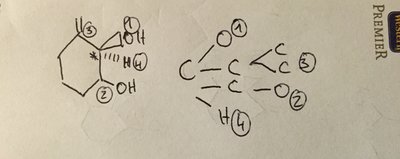 ③ ① OH
* H ④
② OH
O ①
C C C
C ③
C O ②
H ④
PREMIER